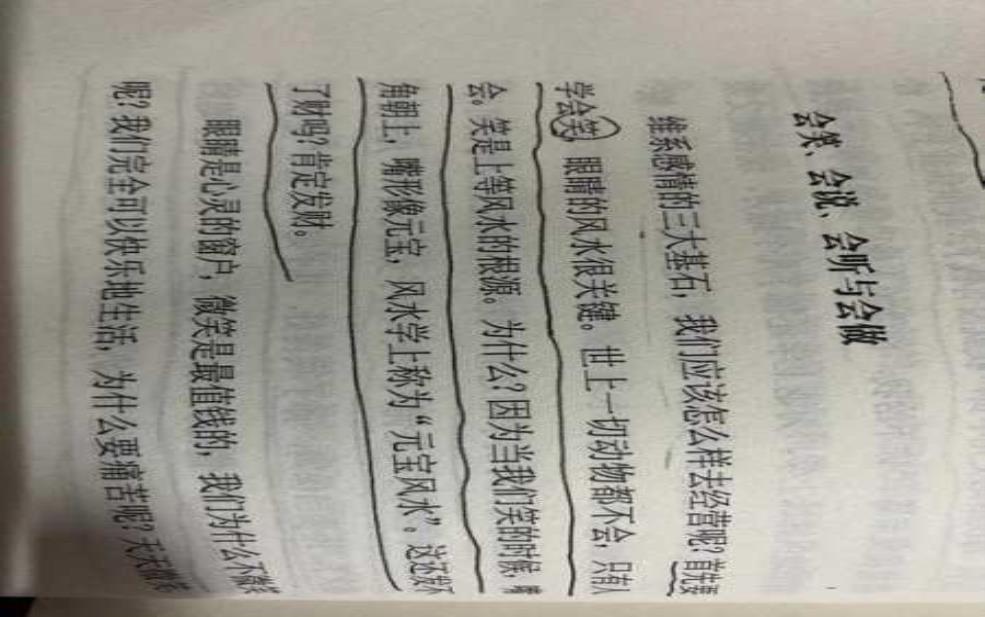 会笑、会说、会听与会做
维系感情的三大基石，我们应该怎么样去经营呢？首先要
学会笑，眼睛的风水很关键。世上一切动物都不会，只有人
会。笑是上等风水的根源。为什么？因为当我们笑的时候，嘴
角朝上，嘴形像元宝，风水学上称为“元宝风水”。这还发不
了财吗？肯定发财。
眼睛是心灵的窗户，微笑是最值钱的，我们为什么不微笑
呢？我们完全可以快乐地生活，为什么要痛苦呢？天天微笑